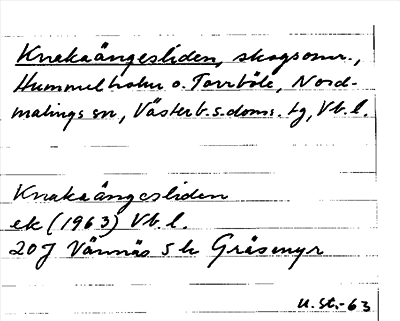 Knakaängesliden, skogsomr.,
Hummelholm o. Torrböle, Nord-
malings sn, Västerb. s. doms. tg, Vb. l.
Knakaängesliden
ek (1963) Vb. l.
20J Vännäs 5 h Gräsmyr
U. St.-63